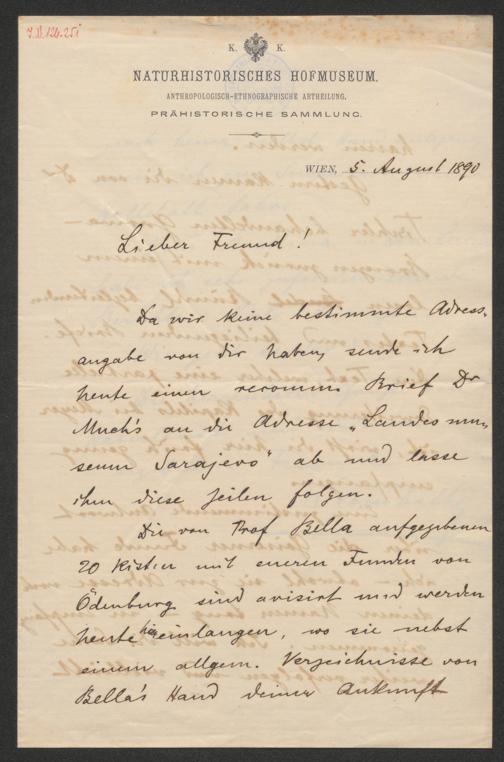 K. K.
NATURHISTORISCHES HOFMUSEUM.
ANTHROPOLOGISCH-ETHNOGRAPHISCHE ABTHEILUNG.
PRÄHISTORISCHE SAMMLUNG.
WIEN, 5. August 1890
Lieber Freund!
Da wir keine bestimmte Adress-
angabe von dir haben, sende ich
heute einen recomm. Brief Dr
Much's an die Adresse „Landesmu-
seum Sarajevo" ab und lasse
ihm diese Zeilen folgen.
Die von Prof Bella aufgegebenen
20 Kisten mit eueren Funden von
Ödenburg sind avisirt und werden
heute hier einlangen, wo sie nebst
einem allgem. Verzeichnisse von
Bella's Hand deiner Ankunft